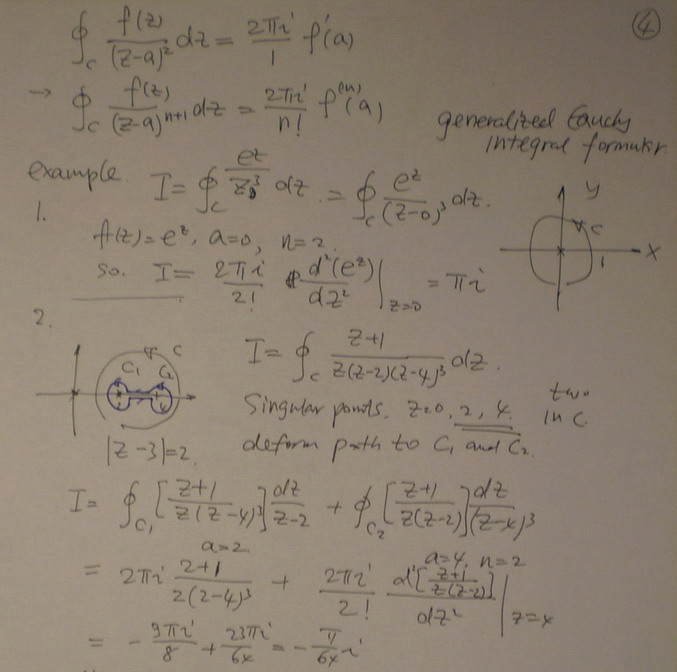 ④
∮_C f(z)/(z-a)² dz = 2πi/1 f'(a)
→ ∮_C f(z)/(z-a)^{n+1} dz = 2πi/n! f^{(n)}(a)
generalized Cauchy
integral formular.
example. I = ∮_C e^z/z³ dz = ∮_C e^z/(z-0)³ dz.
1.
f(z)=e^z, a=0, n=2.
so. I = 2πi/2! d²(e^z)/dz² |_{z=0} = πi
y
C
1
x
2.
I = ∮_C z+1/z(z-2)(z-4)³ dz.
C
C₁ C₂
|z-3|=2.
Singular points. z=0, 2, 4. two in C.
deform path to C₁ and C₂.
I = ∮_{C₁} [z+1/z(z-4)³] dz/z-2 + ∮_{C₂} [z+1/z(z-2)] dz/(z-4)³
a=2. a=4, n=2
= 2πi 2+1/2(2-4)³ + 2πi/2! d²[z+1/z(z-2)]/dz² |_{z=4}
= - 3πi/8 + 23πi/64 = - π/64 i